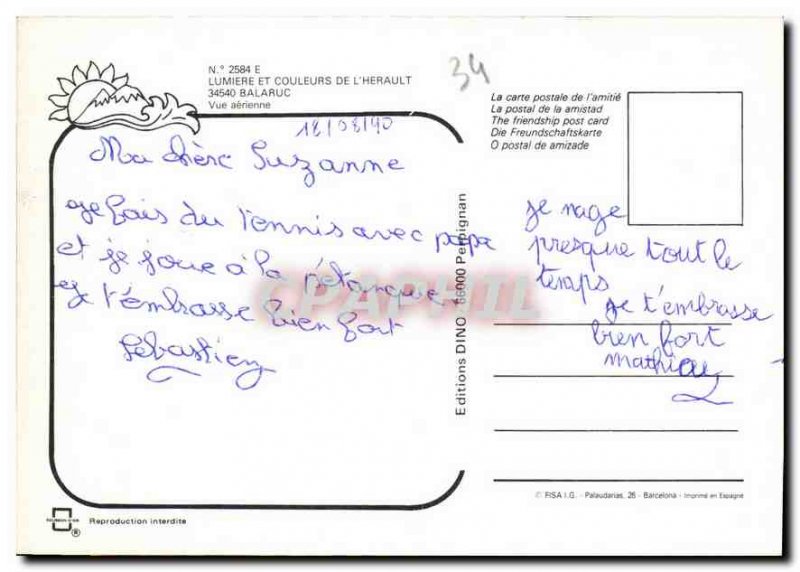 N.° 2584 E
LUMIERE ET COULEURS DE L'HERAULT
34540 BALARUC
Vue aérienne
34
La carte postale de l'amitié
La postal de la amistad
The friendship post card
Die Freundschaftskarte
O postal de amizade
18/08/90
Ma chère Suzanne
je fais du tennis avec papa
et je joue à la pétanque
je t'embrasse bien fort
Sébastien
Editions DINO - 66000 Perpignan
CPAPHIL
je nage
presque tout le
temps
je t'embrasse
bien fort
mathieu
© FISA I.G. - Palaudarias, 26 - Barcelona - Imprimé en Espagne
Reproduction interdite
®